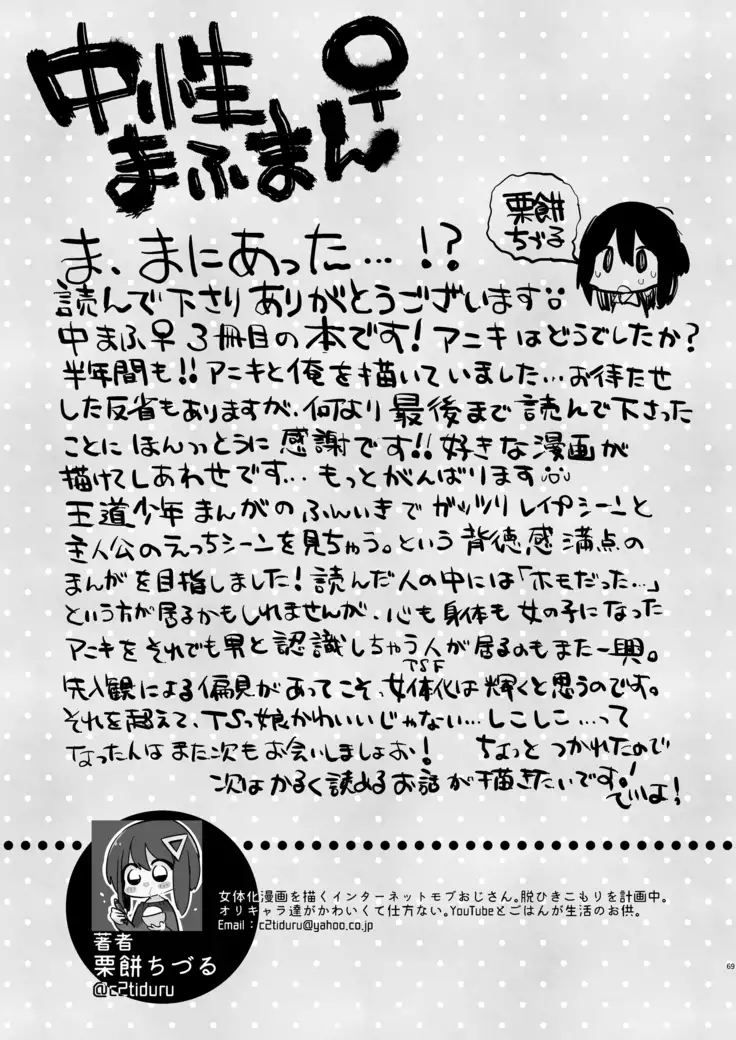 中性
まふまん♀
栗餅
ちづる
ま、まにあった…!?
読んで下さりありがとうございます
中まふ♀3冊目の本です!アニキはどうでしたか?
半年間も!!アニキと俺を描いていました…お待たせ
した反省もありますが、何より最後まで読んで下さった
ことにほんっっとうに感謝です!!好きな漫画が
描けてしあわせです…もっとがんばります
王道少年まんがのふんいきでガッツリレイプシーンと
主人公のえっちシーンを見ちゃう。という背徳感満点の
まんがを目指しました!読んだ人の中には「ホモだった…」
という方が居るかもしれませんが、心も身体も女の子になった
アニキをそれでも男と認識しちゃう人が居るのもまた一興。
先入観による偏見があってこそ、女体化は輝くと思うのです。
TSF
それを超えて、TSっ娘かわいいじゃない…しこしこ…って
なった人はまた次もお会いしましょお! ちょっとつかれたので
次はかるく読めるお話が描きたいです!
でいは!
女体化漫画を描くインターネットモブおじさん。脱ひきこもりを計画中。
オリキャラ達がかわいくて仕方ない。YouTubeとごはんが生活のお供。
Email:c2tiduru@yahoo.co.jp
著者
栗餅ちづる
@c2tiduru
69